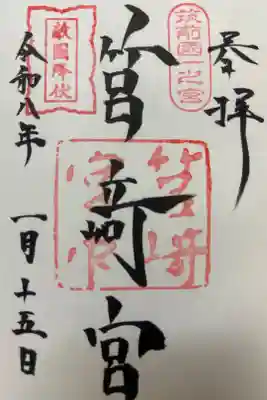 奉拝
筑前國一之宮
筥﨑宮
敵國降伏
令和八年 一月十五日